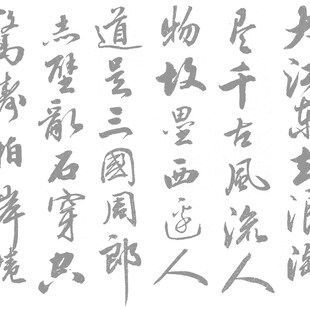 大江東去浪淘
尽千古風流人
物故壘西邊人
道是三國周郎
赤壁亂石穿空
驚濤拍岸